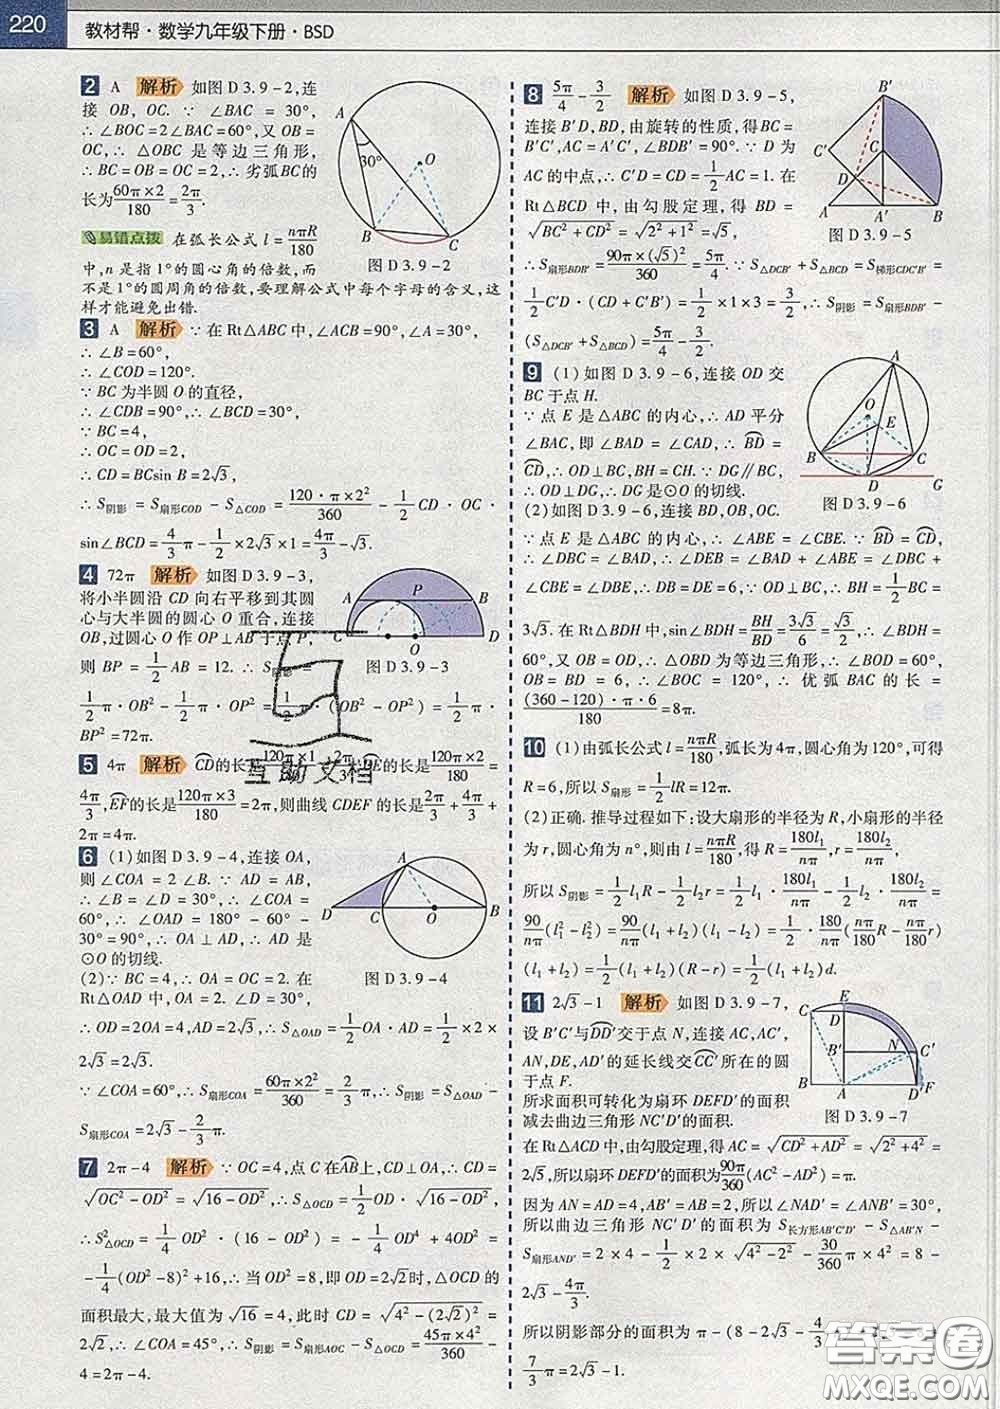 220 教材帮·数学九年级下册·BSD
2 A 解析 如图 D 3.9-2,连
接 OB, OC. ∵ ∠BAC = 30°,
∴ ∠BOC = 2∠BAC = 60°, 又 OB =
OC, ∴ △OBC 是等边三角形,
∴ BC = OB = OC = 2, ∴ 劣弧BC的
长为 60π×2/180 = 2π/3.
易错点拨 在弧长公式 l = nπR/180
中, n 是指 1°的圆心角的倍数, 而
不是 1°的圆周角的倍数, 要理解公式中每个字母的含义, 这
样才能避免出错.
A
30°
O
B
C
图 D 3.9-2
3 A 解析 ∵ 在 Rt△ABC 中, ∠ACB = 90°, ∠A = 30°,
∴ ∠B = 60°,
∴ ∠COD = 120°.
∵ BC 为半圆 O 的直径,
∴ ∠CDB = 90°, ∴ ∠BCD = 30°.
∵ BC = 4,
∴ OC = OD = 2,
∴ CD = BCsin B = 2√3,
∴ S阴影 = S扇形COD − S△COD = 120·π×2²/360 − 1/2 CD · OC ·
sin∠BCD = 4/3 π − 1/2 × 2√3 × 1 = 4π/3 − √3.
4 72π 解析 如图 D 3.9-3,
将小半圆沿 CD 向右平移到其圆
心与大半圆的圆心 O 重合, 连接
OB, 过圆心 O 作 OP⊥AB 于点 P,
则 BP = 1/2 AB = 12. ∴ S阴影 =
1/2 π · OB² − 1/2 π · OP² = 1/2 π · (OB² − OP²) = 1/2 π ·
BP² = 72π.
A P B
C O D
图 D 3.9-3
5 4π 解析 CD的长是 120π×1/180 = 2π/3, DE的长是 120π×2/180 =
4π/3, EF的长是 120π×3/180 = 2π, 则曲线 CDEF 的长是 2π/3 + 4π/3 +
2π = 4π.
6 (1)如图 D 3.9-4, 连接 OA,
则 ∠COA = 2∠B. ∵ AD = AB,
∴ ∠B = ∠D = 30°, ∴ ∠COA =
60°, ∴ ∠OAD = 180° − 60° −
30° = 90°, ∴ OA⊥AD, ∴ AD 是
⊙O 的切线.
(2) ∵ BC = 4, ∴ OA = OC = 2. 在
Rt△OAD 中, ∵ ∠D = 30°,
∴ OD = 2OA = 4, AD = 2√3, ∴ S△OAD = 1/2 OA · AD = 1/2 × 2 ×
2√3 = 2√3.
∵ ∠COA = 60°, ∴ S扇形COA = 60π×2²/360 = 2/3 π, ∴ S阴影 = S△OAD −
S扇形COA = 2√3 − 2/3 π.
A
D C O B
图 D 3.9-4
7 2π−4 解析 ∵ OC = 4, 点 C 在AB上, CD⊥OA, ∴ CD =
√(OC² − OD²) = √(16 − OD²), ∴ S△OCD = 1/2 OD · √(16 − OD²),
∴ S²△OCD = 1/4 OD² · (16 − OD²) = −1/4 OD⁴ + 4OD² =
−1/4 (OD² − 8)² + 16, ∴ 当 OD² = 8, 即 OD = 2√2时, △OCD 的
面积最大, 最大值为 √16 = 4, 此时 CD = √(4² − (2√2)²) =
2√2, ∴ ∠COA = 45°, ∴ S阴影 = S扇形AOC − S△OCD = 45π×4²/360 −
4 = 2π − 4.
8 5π/4 − 3/2 解析 如图 D 3.9-5,
连接 B'D, BD, 由旋转的性质, 得 BC =
B'C', AC = A'C', ∠BDB' = 90°. ∵ D 为
AC 的中点, ∴ C'D = CD = 1/2 AC = 1. 在
Rt△BCD 中, 由勾股定理, 得 BD =
√(BC² + CD²) = √(2² + 1²) = √5,
∴ S扇形BDB' = 90π×(√5)²/360 = 5π/4. ∵ S△DCB' + S△BCD = S梯形CDC'B' =
1/2 C'D · (CD + C'B') = 1/2 × 1 × 3 = 3/2, ∴ S阴影 = S扇形BDB' −
(S△DCB' + S△BCD) = 5π/4 − 3/2.
B'
C' C
D
A A' B
图 D 3.9-5
9 (1)如图 D 3.9-6, 连接 OD 交
BC 于点 H.
∵ 点 E 是△ABC 的内心, ∴ AD 平分
∠BAC, 即 ∠BAD = ∠CAD, ∴ BD =
CD, ∴ OD⊥BC, BH = CH. ∵ DG∥BC,
∴ OD⊥DG, ∴ DG 是⊙O 的切线.
(2)如图 D 3.9-6, 连接 BD, OB, OC.
∵ 点 E 是△ABC 的内心, ∴ ∠ABE = ∠CBE. ∵ BD = CD,
∴ ∠DBC = ∠BAD, ∴ ∠DEB = ∠BAD + ∠ABE = ∠DBC +
∠CBE = ∠DBE, ∴ DB = DE = 6. ∵ OD⊥BC, ∴ BH = 1/2 BC =
3√3. 在 Rt△BDH 中, sin∠BDH = BH/BD = 3√3/6 = √3/2, ∴ ∠BDH =
60°, 又 OB = OD, ∴ △OBD 为等边三角形, ∴ ∠BOD = 60°,
OB = BD = 6, ∴ ∠BOC = 120°, ∴ 优弧 BAC 的长 =
(360−120)·π·6/180 = 8π.
A
O
E
B C
D G
图 D 3.9-6
10 (1)由弧长公式 l = nπR/180, 弧长为 4π, 圆心角为 120°, 可得
R = 6, 所以 S扇形 = 1/2 lR = 12π.
(2)正确. 推导过程如下: 设大扇形的半径为 R, 小扇形的半径
为 r, 圆心角为 n°, 则由 l = nπR/180, 得 R = 180l₁/nπ, r = 180l₂/nπ,
所以 S阴影 = 1/2 l₁R − 1/2 l₂r = 1/2 l₁ · 180l₁/nπ − 1/2 l₂ · 180l₂/nπ =
90/nπ (l₁² − l₂²) = 90/nπ (l₁ + l₂)(l₁ − l₂) = 1/2 · 180/nπ (nπ/180 R − nπ/180 r)
(l₁ + l₂) = 1/2 (l₁ + l₂)(R − r) = 1/2 (l₁ + l₂)d.
11 2√3−1 解析 如图 D 3.9-7,
设 B'C'与DD'交于点 N, 连接 AC, AC',
AN, DE, AD'的延长线交CC'所在的圆
于点 F.
所求面积可转化为扇环 DEFD'的面积
减去曲边三角形 NC'D'的面积.
在 Rt△ACD 中, 由勾股定理, 得 AC = √(CD² + AD²) = √(2² + 4²) =
2√5, 所以扇环 DEFD'的面积为 90π/360 (AC² − AD²) = π.
因为 AN = AD = 4, AB' = AB = 2, 所以 ∠NAD' = ∠ANB' = 30°,
所以曲边三角形 NC'D'的面积为 S长方形AB'C'D' − S△AB'N −
S扇形AND' = 2 × 4 − 1/2 × 2 × √(4² − 2²) − 30/360 π × 4² = 8 −
2√3 − 4π/3.
所以阴影部分的面积为 π − (8 − 2√3 − 4/3
7/3 π = 2√3 − 1.
C D E
B' N C'
B A D' F
图 D 3.9-7
互助文档
答案圈
MXQE.COM